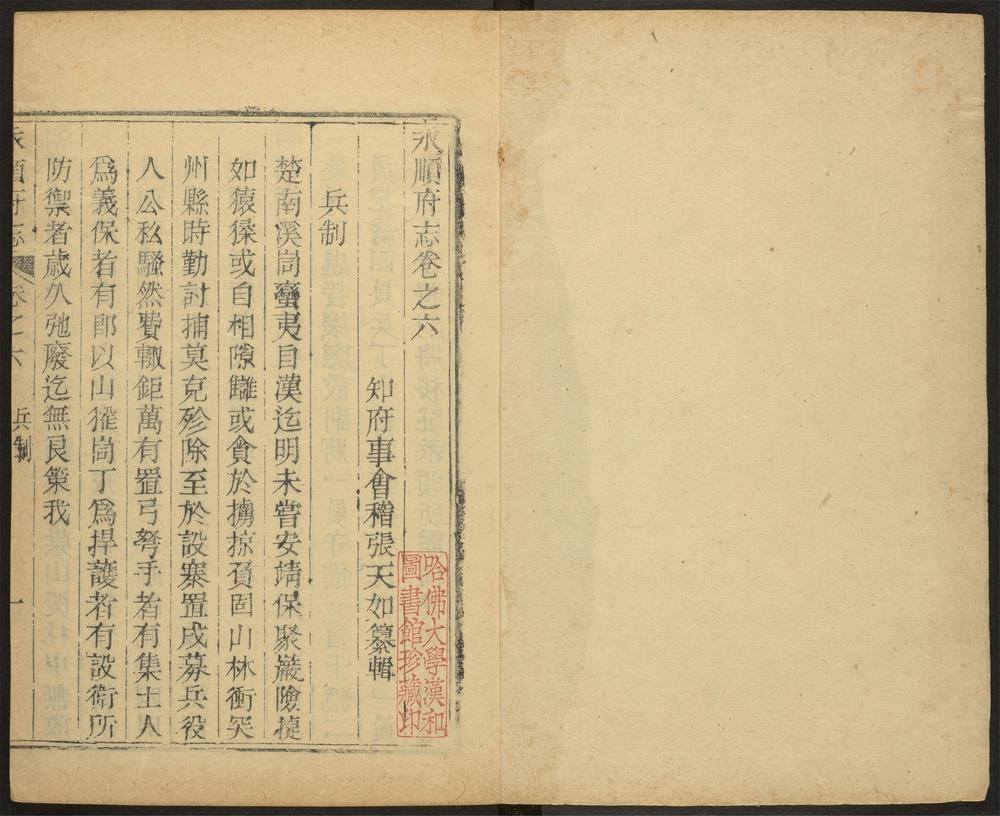 永順府志卷之六
知府事會稽張天如纂輯
兵制
楚南溪峝蠻夷自漢迄明未嘗安靖保聚巖險捷
如猿猱或自相隙讎或貪於擄掠負固山林衝突
州縣時勤討捕莫克殄除至於設寨置戍募兵役
人公私騷然費輙鉅萬有置弓弩手者有集土人
爲義保者有即以山猺峝丁爲捍護者有設衛所
防禦者歲久弛廢迄無良策我
永順府志 卷之六 兵制 一
哈佛大學漢和
圖書館珍藏印